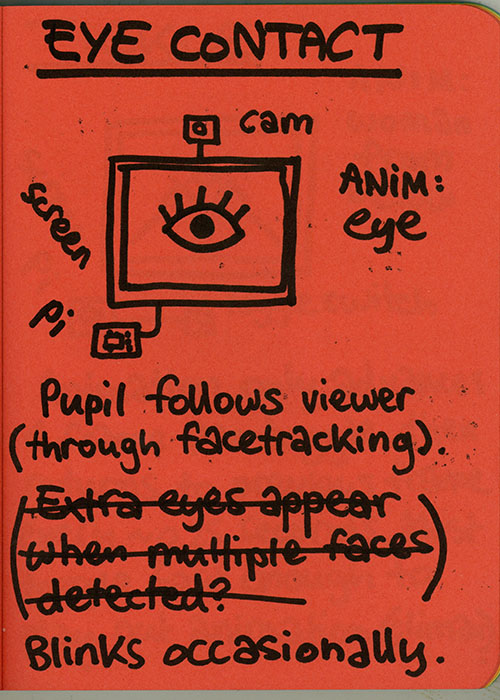 EYE CONTACT
cam
ANIM:
eye
screen
Pi
Pupil follows viewer
(through facetracking).
(Extra eyes appear
when multiple faces
detected?)
Blinks occasionally.